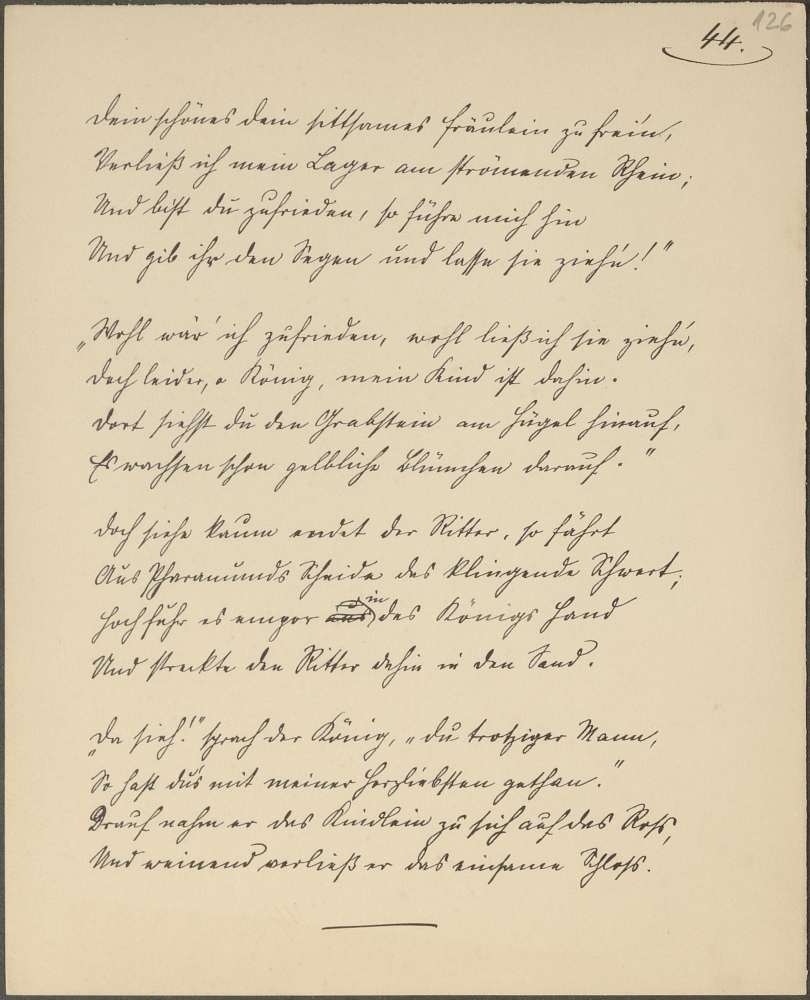 126
44.
Dein schönes dein sittsames Fräulein zu frei'n,
Verließ ich mein Lager am strömenden Rhein;
Und bist du zufrieden, so führe mich hin
Und gib ihr den Segen und lasse sie ziehn!"
„Wohl wär' ich zufrieden, wohl ließ ich sie ziehn,
Doch leider, o König, mein Kind ist dahin.
Dort siehst du den Grabstein am Hügel hinauf,
Es wachsen schon gelbliche Blümchen darauf."
Doch siehe kaum endet der Ritter, so fährt
Aus Pharamunds Scheide das klingende Schwert;
Hoch fuhr es empor aus in des Königs Hand
Und streckte den Ritter dahin in den Sand.
„Da sieh!" sprach der König, „du trotziger Mann,
So hast du's mit meiner Herzliebsten gethan."
Drauf nahm er das Kindlein zu sich auf das Ross,
Und weinend verließ er das einsame Schloss.